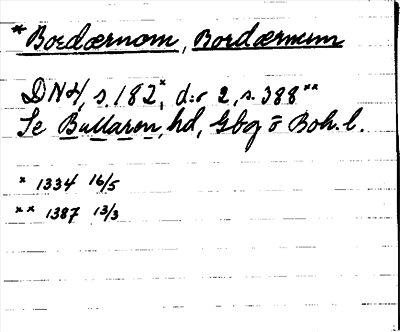 *Bordærnom, Bordærnum
DN4, s. 182*, d:o 2, s. 388**
Se Bullaren, hd, Gbg o Boh. l.
* 1334 16/5
** 1387 13/3